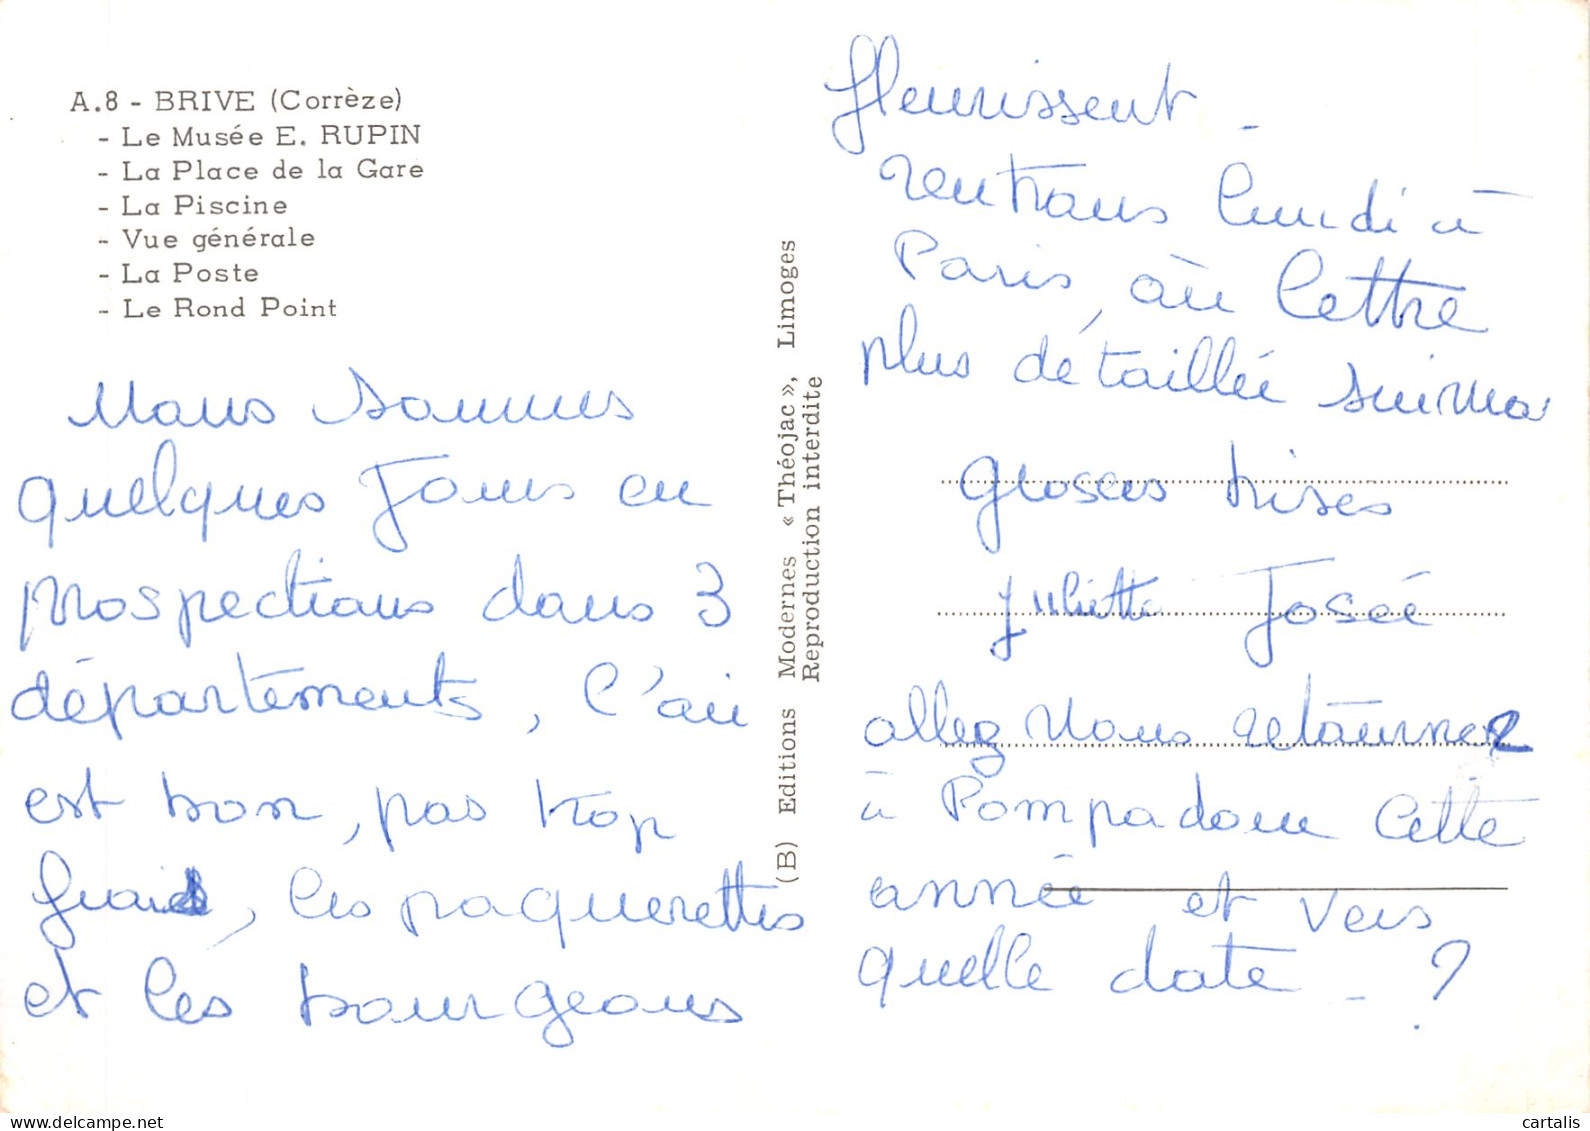 A.8 - BRIVE (Corrèze)
- Le Musée E. RUPIN
- La Place de la Gare
- La Piscine
- Vue générale
- La Poste
- Le Rond Point
Nous sommes
quelques jours en
prospections dans 3
départements, l'air
est bon, pas trop
frais, les paquerettes
et les bourgeons
(B) Editions Modernes « Théojac », Limoges
Reproduction interdite
fleurissent -
rentrons lundi à
Paris, où lettre
plus détaillée suivra
grosses bises
Juliette Josée
allez vous retourner
à Pompadour cette
année et vers
quelle date - ?
cartalis